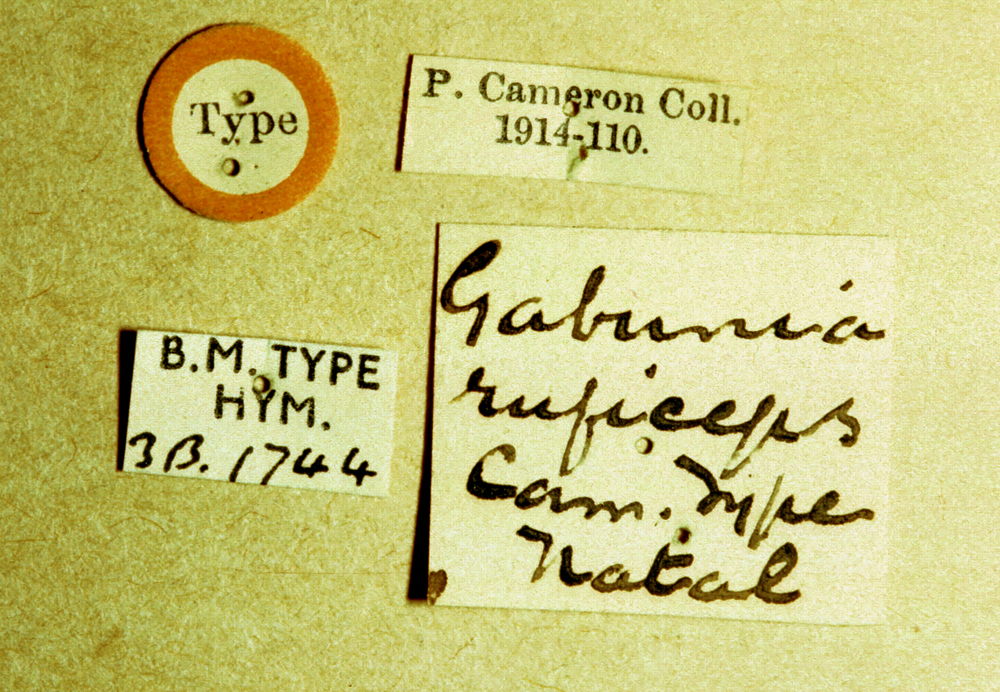 Type
P. Cameron Coll.
1914-110.
B.M. TYPE
HYM.
3B. 1744
Gabunia
ruficeps
Cam. Type
Natal